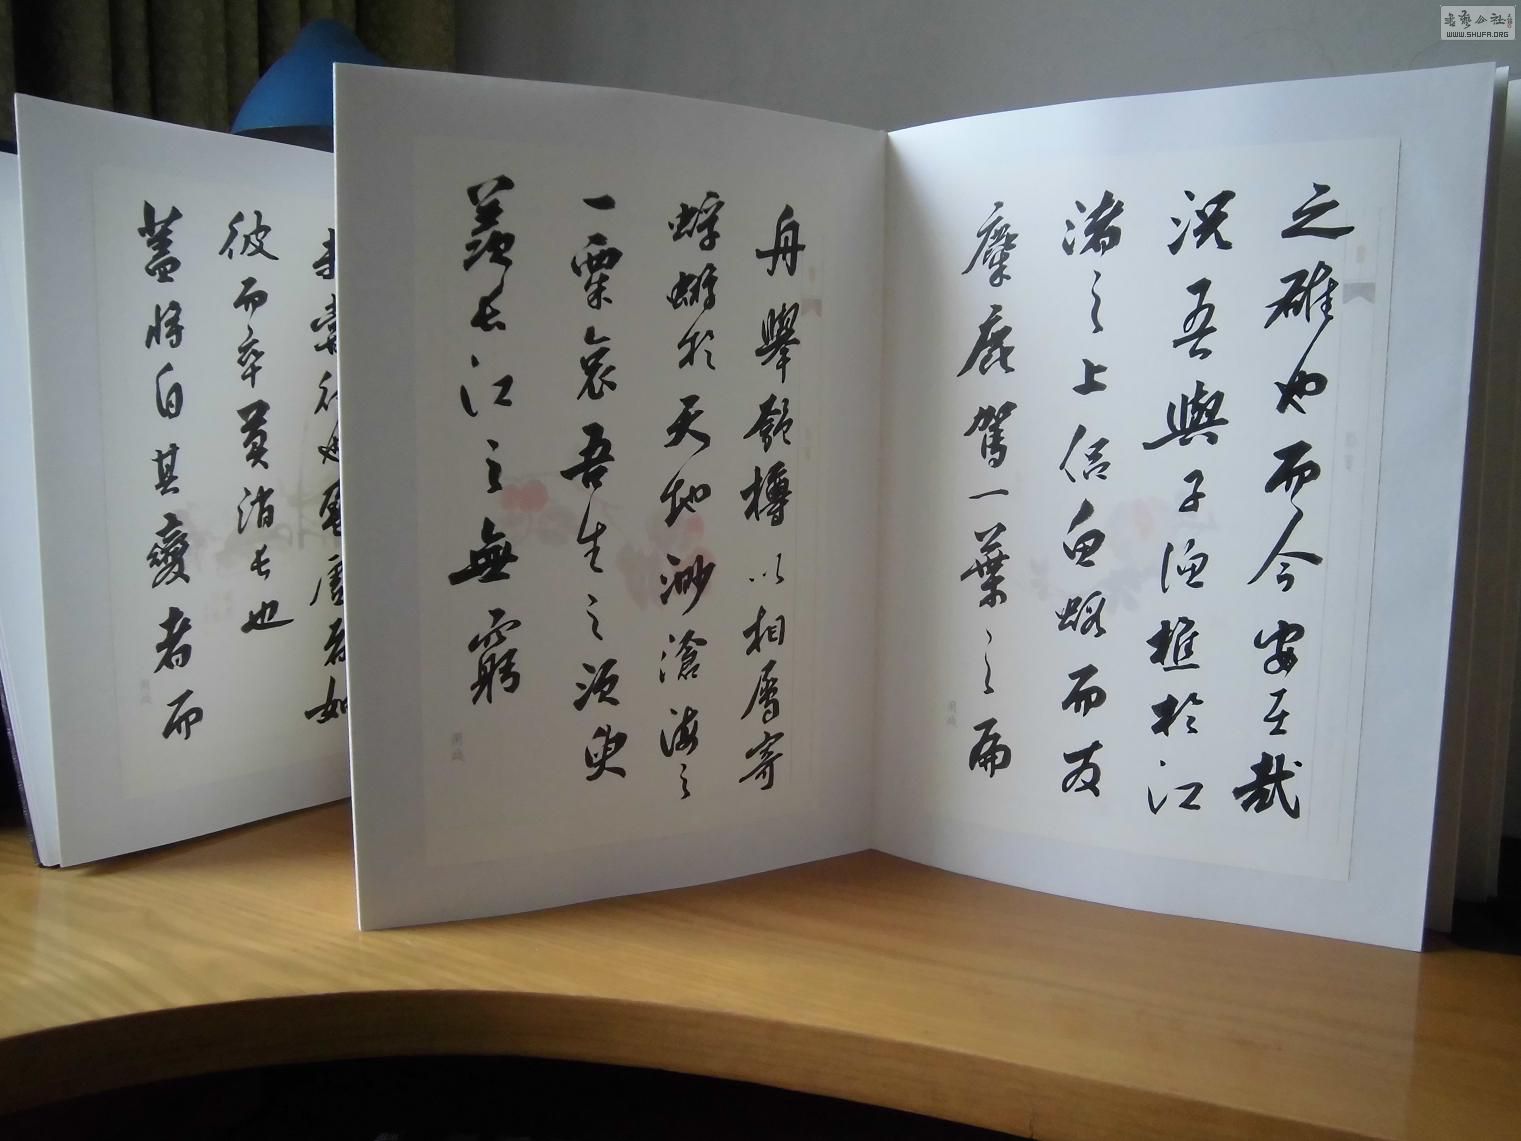 之雄也而今安在哉
況吾與子漁樵於江
渚之上侶魚蝦而友
麋鹿駕一葉之扁
舟舉匏樽以相屬寄
蜉蝣於天地渺滄海之
一粟哀吾生之須臾
羨長江之無窮
未嘗往也盈虛者如
彼而卒莫消長也
蓋將自其變者而
書藝公社
WWW.SHUFA.ORG